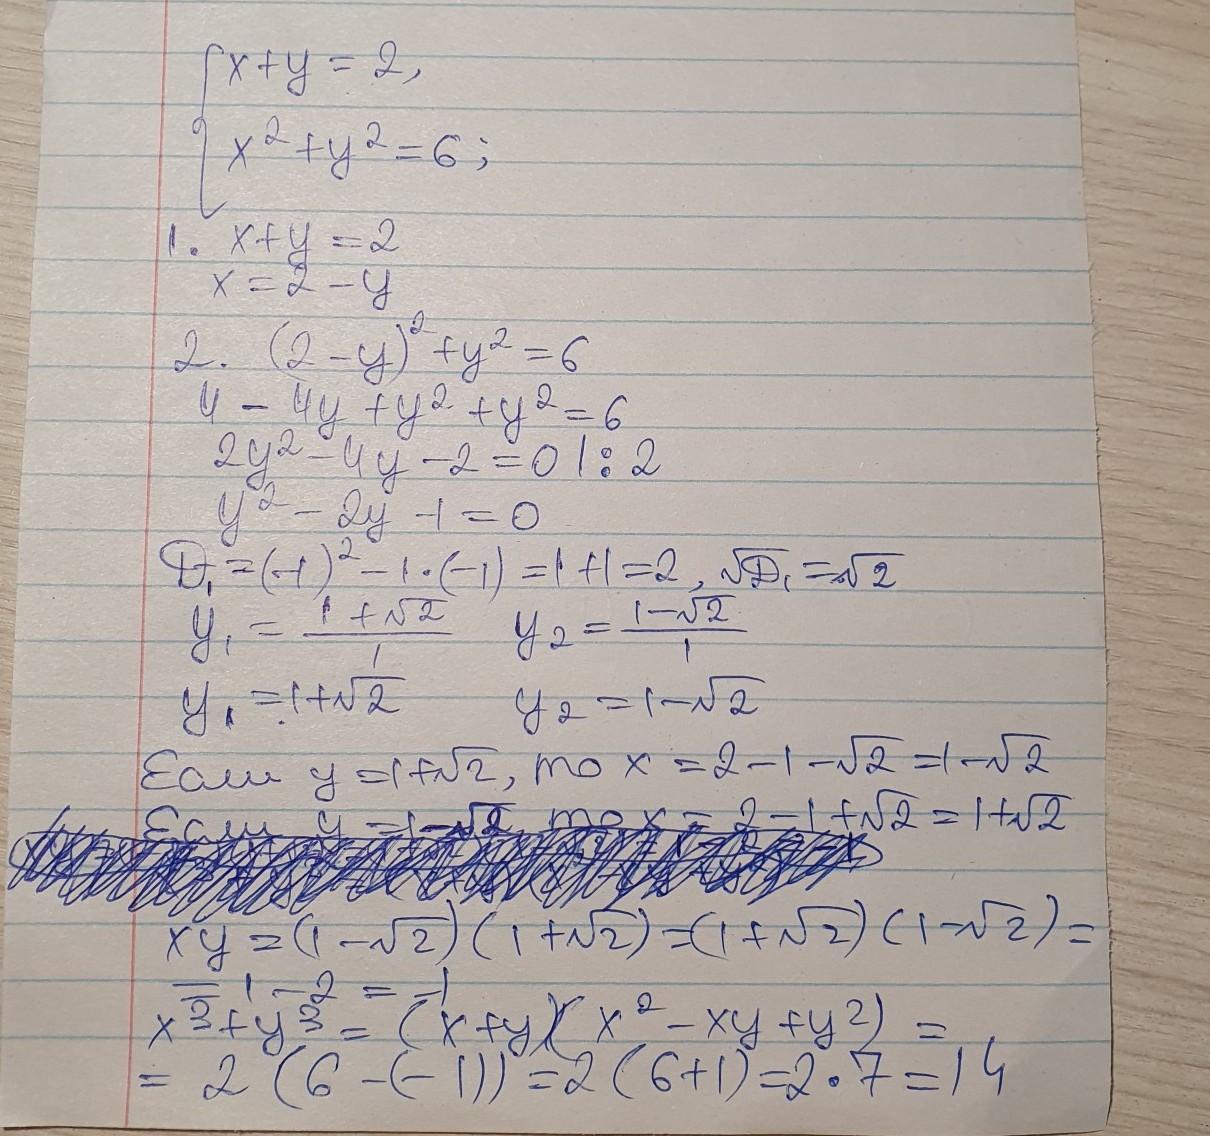 x+y=2,
x²+y²=6;
1. x+y=2
x=2-y
2. (2-y)²+y²=6
4-4y+y²+y²=6
2y²-4y-2=0|:2
y²-2y-1=0
D₁=(-1)²-1·(-1)=1+1=2, √D₁=√2
y₁=(1+√2)/1 y₂=(1-√2)/1
y₁=1+√2 y₂=1-√2
Если y=1+√2, то x=2-1-√2=1-√2
Если y=1-√2, то x=2-1+√2=1+√2
xy=(1-√2)(1+√2)=(1+√2)(1-√2)=
=1-2=-1
x³+y³=(x+y)(x²-xy+y²)=
=2(6-(-1))=2(6+1)=2·7=14